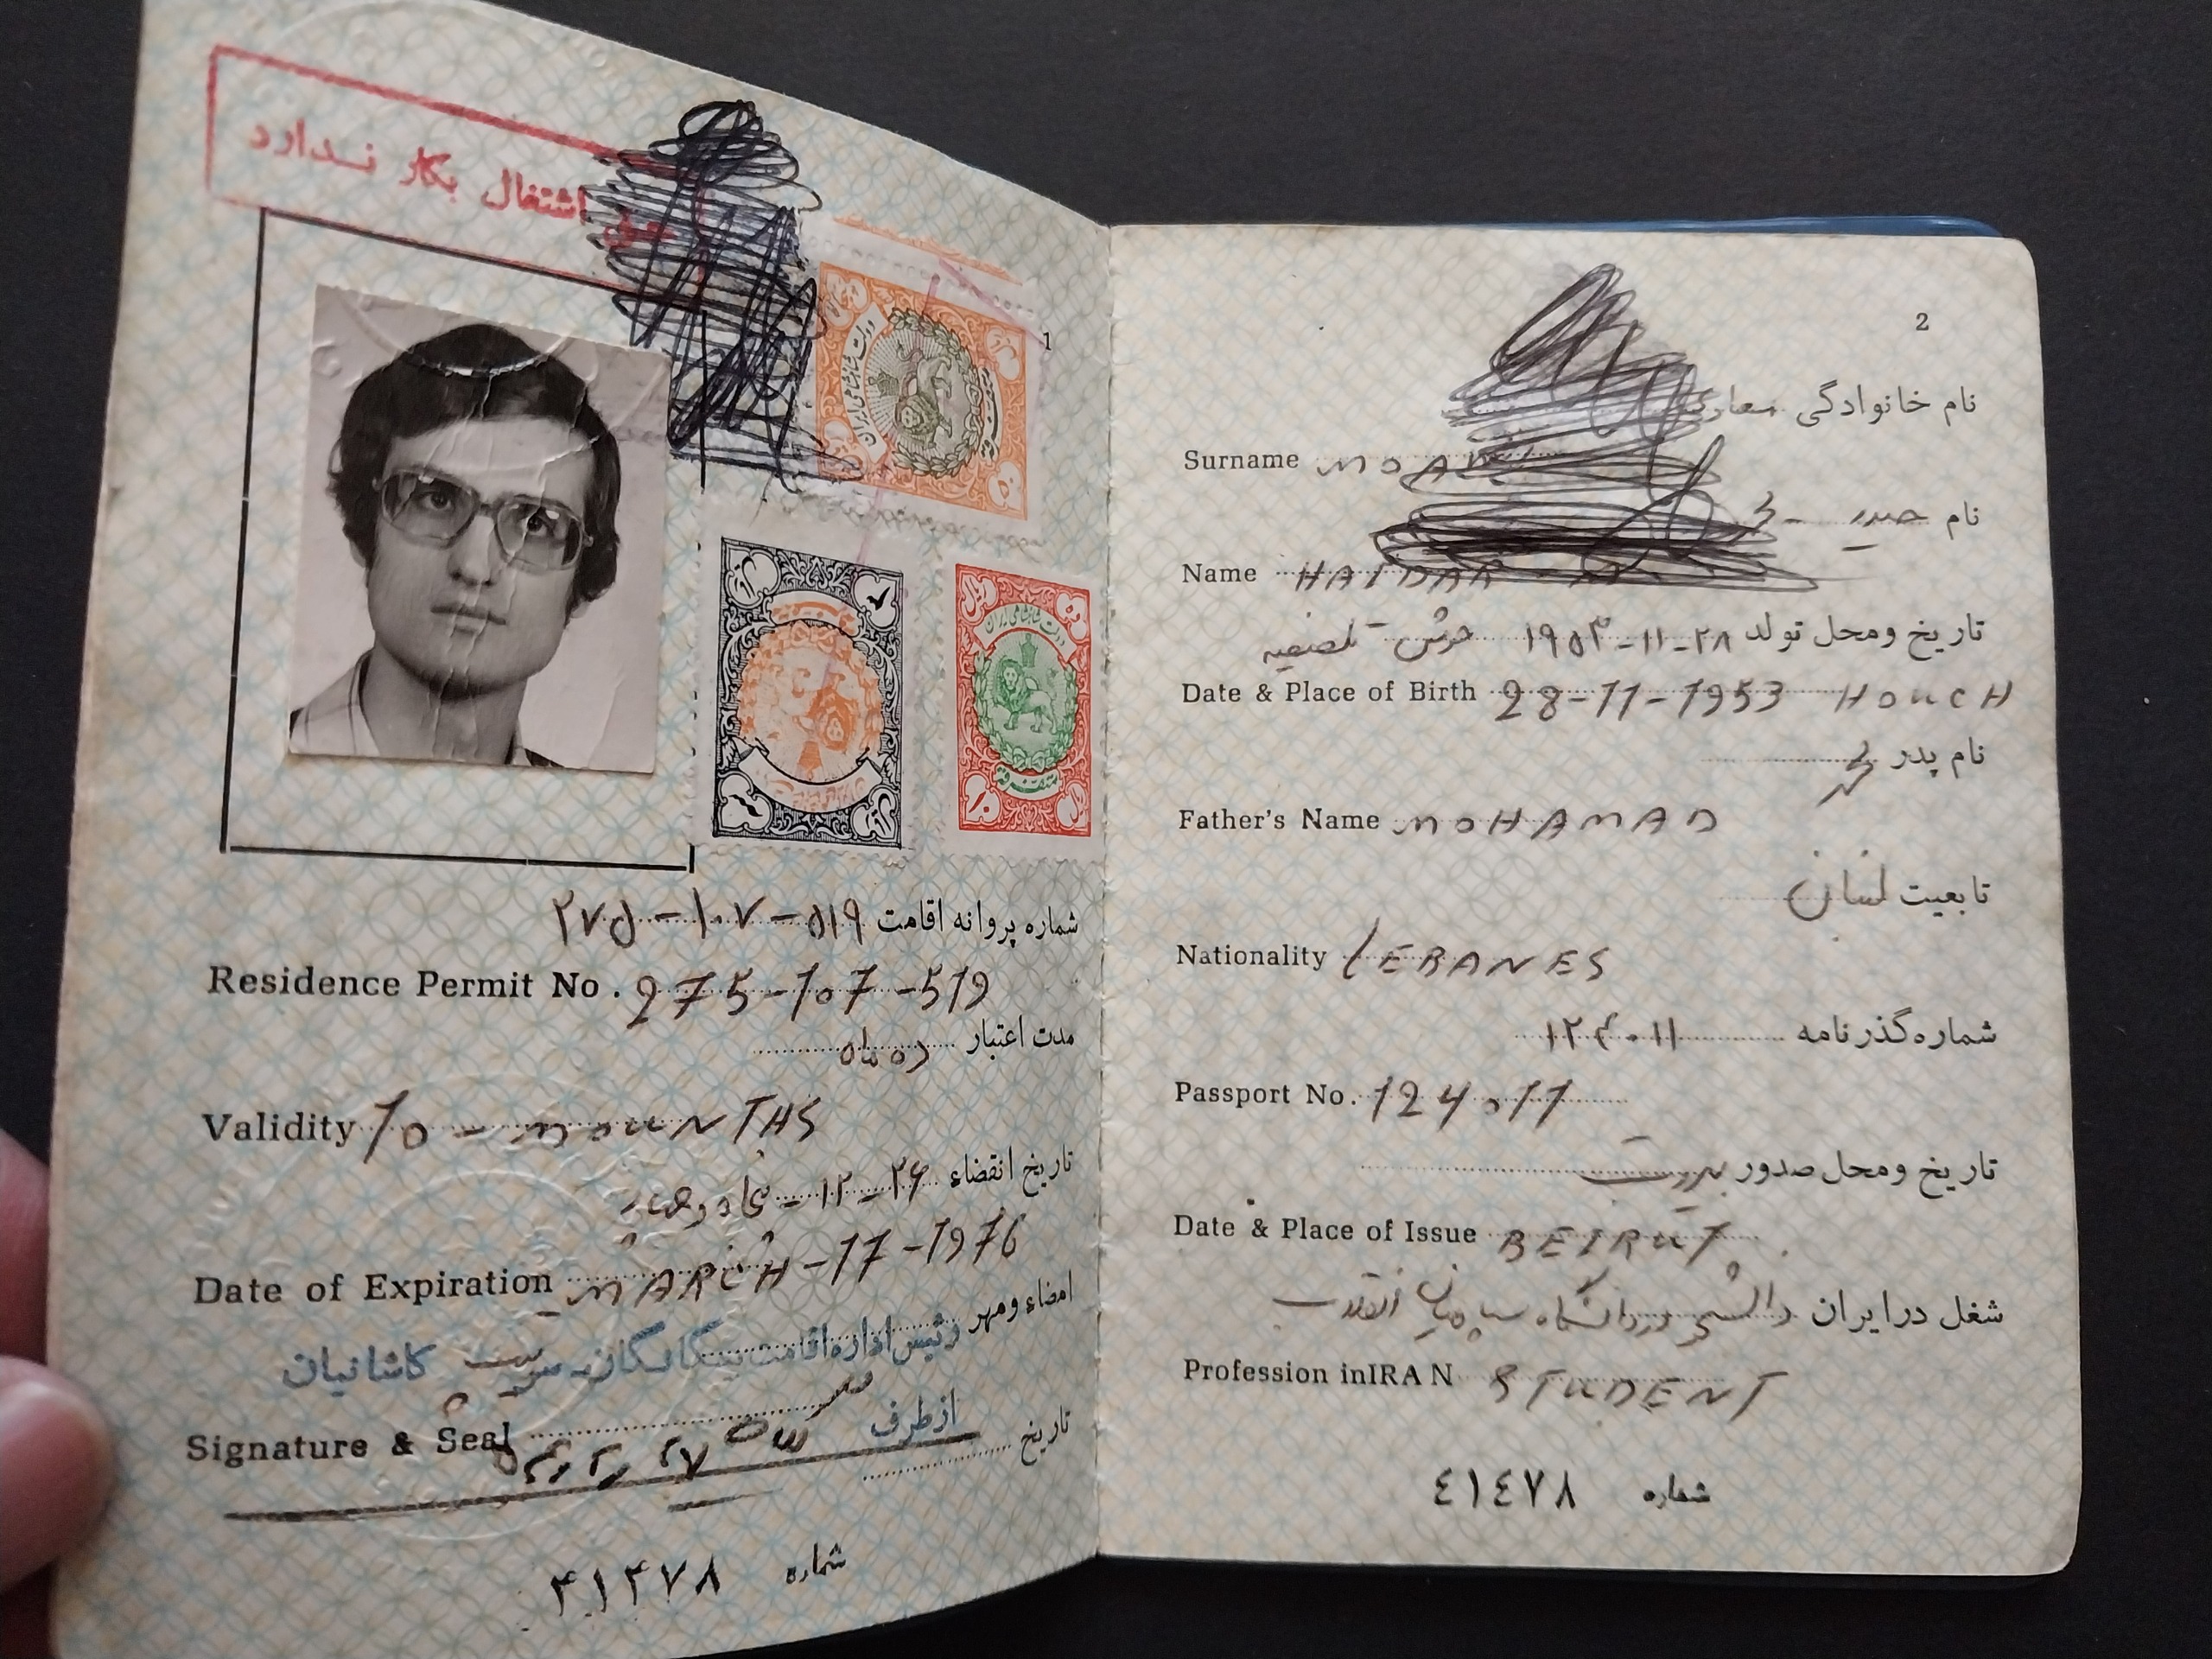 حق اشتغال بکار ندارد
1
دولت شاهنشاهی ایران
دولت شاهنشاهی ایران
متفرقه
شماره پروانه اقامت ۲۷۵-۱۰۷-۵۱۹
Residence Permit No. 275-107-519
مدت اعتبار ده ماه
Validity 10 - MOUNTHS
تاریخ انقضاء ۲۶-۱۲-
Date of Expiration MARCH-17-1976
امضاء و مهر
رئیس اداره اقامت بیگانگان کاشانیان
Signature & Seal
از طرف
تاریخ
شماره ۴۱۴۷۸
2
نام خانوادگی
Surname MOA
نام حیدر
Name HAIDAR M
تاریخ و محل تولد ۲۸-۱۱-۱۹۵۳ حوش
Date & Place of Birth 28-11-1953 HOUCH
نام پدر محمد
Father's Name MOHAMAD
تابعیت لبنان
Nationality LEBANES
شماره گذرنامه ۱۲۴۰۱۱
Passport No. 124011
تاریخ و محل صدور بیروت
Date & Place of Issue BEIRUT
شغل در ایران دانشجو دانشگاه سپاهیان انقلاب
Profession inIRAN STUDENT
شماره ٤١٤٧٨